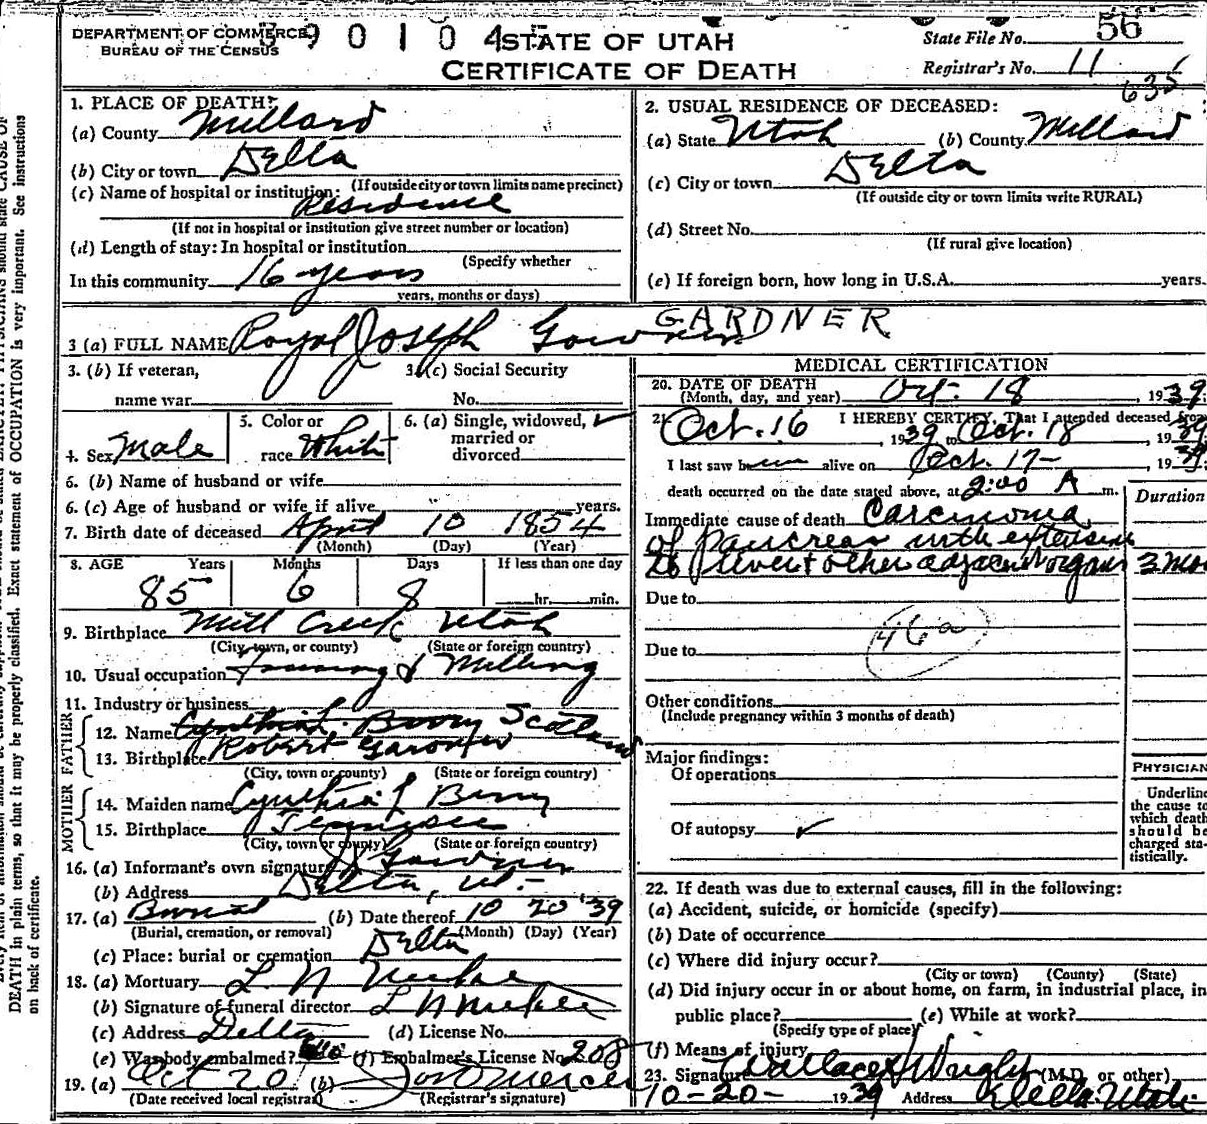 DEPARTMENT OF COMMERCE
BUREAU OF THE CENSUS
3 9 0 1 0 4 5
STATE OF UTAH
CERTIFICATE OF DEATH
State File No. 56
Registrar's No. 11
635
1. PLACE OF DEATH:
(a) County Millard
(b) City or town Delta
(If outside city or town limits name precinct)
(c) Name of hospital or institution:
Residence
(If not in hospital or institution give street number or location)
(d) Length of stay: In hospital or institution
(Specify whether
In this community 16 years
years, months or days)
2. USUAL RESIDENCE OF DECEASED:
(a) State Utah (b) County Millard
(c) City or town Delta
(If outside city or town limits write RURAL)
(d) Street No.
(If rural give location)
(e) If foreign born, how long in U.S.A. years.
GARDNER
3 (a) FULL NAME Royal Joseph Gardner
3. (b) If veteran,
name war
3. (c) Social Security
No.
4. Sex Male
5. Color or
race White
6. (a) Single, widowed, ✓
married or
divorced
6. (b) Name of husband or wife
6. (c) Age of husband or wife if alive years.
7. Birth date of deceased April 10 1854
(Month) (Day) (Year)
8. AGE Years Months Days If less than one day
85 6 8 hr. min.
9. Birthplace Mill Creek Utah
(City, town, or county) (State or foreign country)
10. Usual occupation Farming & Milling
11. Industry or business
FATHER
12. Name Cynthia L. Berry Scotland
13. Birthplace Robert Gardner
(City, town or county) (State or foreign country)
MOTHER
14. Maiden name Cynthia L Berry
15. Birthplace Tennessee
(City, town or county) (State or foreign country)
16. (a) Informant's own signature Gardner
(b) Address Delta, Ut.
17. (a) Burial (b) Date thereof 10 20 '39
(Burial, cremation, or removal) (Month) (Day) (Year)
(c) Place: burial or cremation Delta
18. (a) Mortuary L. N
(b) Signature of funeral director L N
(c) Address Delta (d) License No.
(e) Was body embalmed? (f) Embalmer's License No. 208
19. (a) Oct 20 (b)
(Date received local registrar) (Registrar's signature)
MEDICAL CERTIFICATION
20. DATE OF DEATH
(Month, day, and year) Oct. 18 1939
21. I HEREBY CERTIFY, That I attended deceased from
Oct. 16, 1939 to Oct. 18 1939
I last saw him alive on Oct. 17 1939
death occurred on the date stated above, at 2:00 A m.
Duration
Immediate cause of death Carcinoma
of Pancreas with extension
to liver & other adjacent organs 3 mos
Due to
46a
Due to
Other conditions
(Include pregnancy within 3 months of death)
Major findings:
Of operations
Of autopsy ✓
PHYSICIAN
Underline
the cause to
which death
should be
charged sta-
tistically.
22. If death was due to external causes, fill in the following:
(a) Accident, suicide, or homicide (specify)
(b) Date of occurrence
(c) Where did injury occur?
(City or town) (County) (State)
(d) Did injury occur in or about home, on farm, in industrial place, in
public place? (e) While at work?
(Specify type of place)
(f) Means of injury
23. Signature Wallace Wright (M.D. or other)
10-20- 1939 Address Delta Utah
DEATH in plain terms, so that it may be properly classified. Exact statement of OCCUPATION is very important. See instructions
on back of certificate.